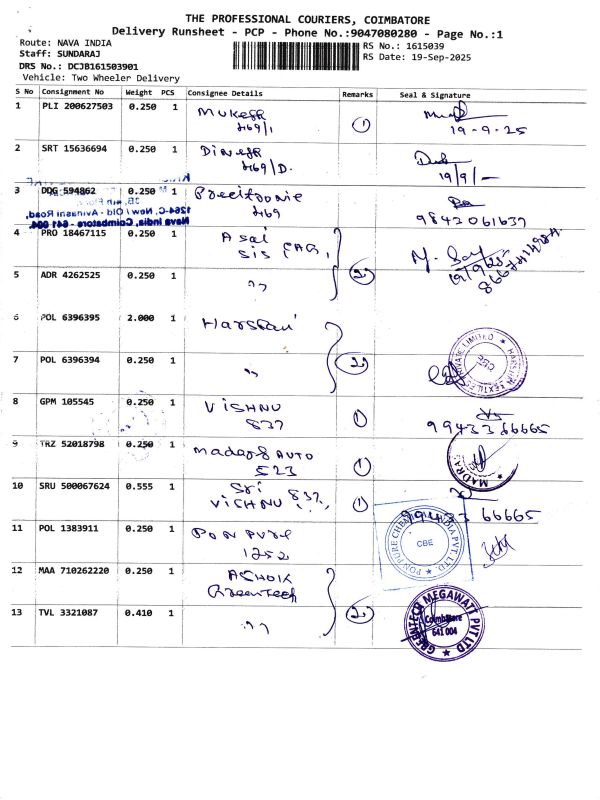 THE PROFESSIONAL COURIERS, COIMBATORE
Delivery Runsheet - PCP - Phone No.:9047080280 - Page No.:1
Route: NAVA INDIA
Staff: SUNDARAJ
DRS No.: DCJB161503901
Vehicle: Two Wheeler Delivery
RS No.: 1615039
RS Date: 19-Sep-2025
S No Consignment No Weight PCS Consignee Details Remarks Seal & Signature
1 PLI 200627503 0.250 1 Mukesh 1
469/1 19-9-25
2 SRT 15636694 0.250 1 Dinesh
469/D. 19/9/-
3 DDG 594862 0.250 1
469 9842061637
1264-C, New \ Old - Avinashi Road,
Nava India, Coimbatore - 641 004.
4 PRO 18467115 0.250 1 Asai
SIS CAR, 19/9/25
5 ADR 4262525 0.250 1 " 2
6 POL 6396395 2.000 1 Harshni
7 POL 6396394 0.250 1 " 2
CBE
8 GPM 105545 0.250 1 VISHNU 1
837 9943366665
9 TRZ 52018798 0.250 1 Madras AUTO 1
523
MADRAS
10 SRU 500067624 0.555 1 Sri 837 1
VISHNU 66665
11 POL 1383911 0.250 1 PON PURE
1252
PON PURE CHEMICAL INDIA PVT. LTD.
CBE
12 MAA 710262220 0.250 1 ASHOK
Greentech
13 TVL 3321087 0.410 1 " 2
GREENTECH MEGAWATT PVT LTD
Coimbatore
641 004